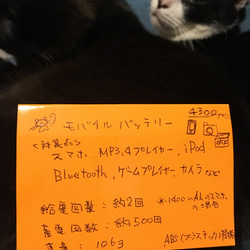 4300mAh
モバイルバッテリー
<対象品>
スマホ、MP3,4プレイヤー、iPod
Bluetooth、ゲームプレイヤー、カメラなど
給電回数：約2回 *1400mAhのスマホの場合
蓄電回数：約500回
重量：106g ABS(プラスチック)